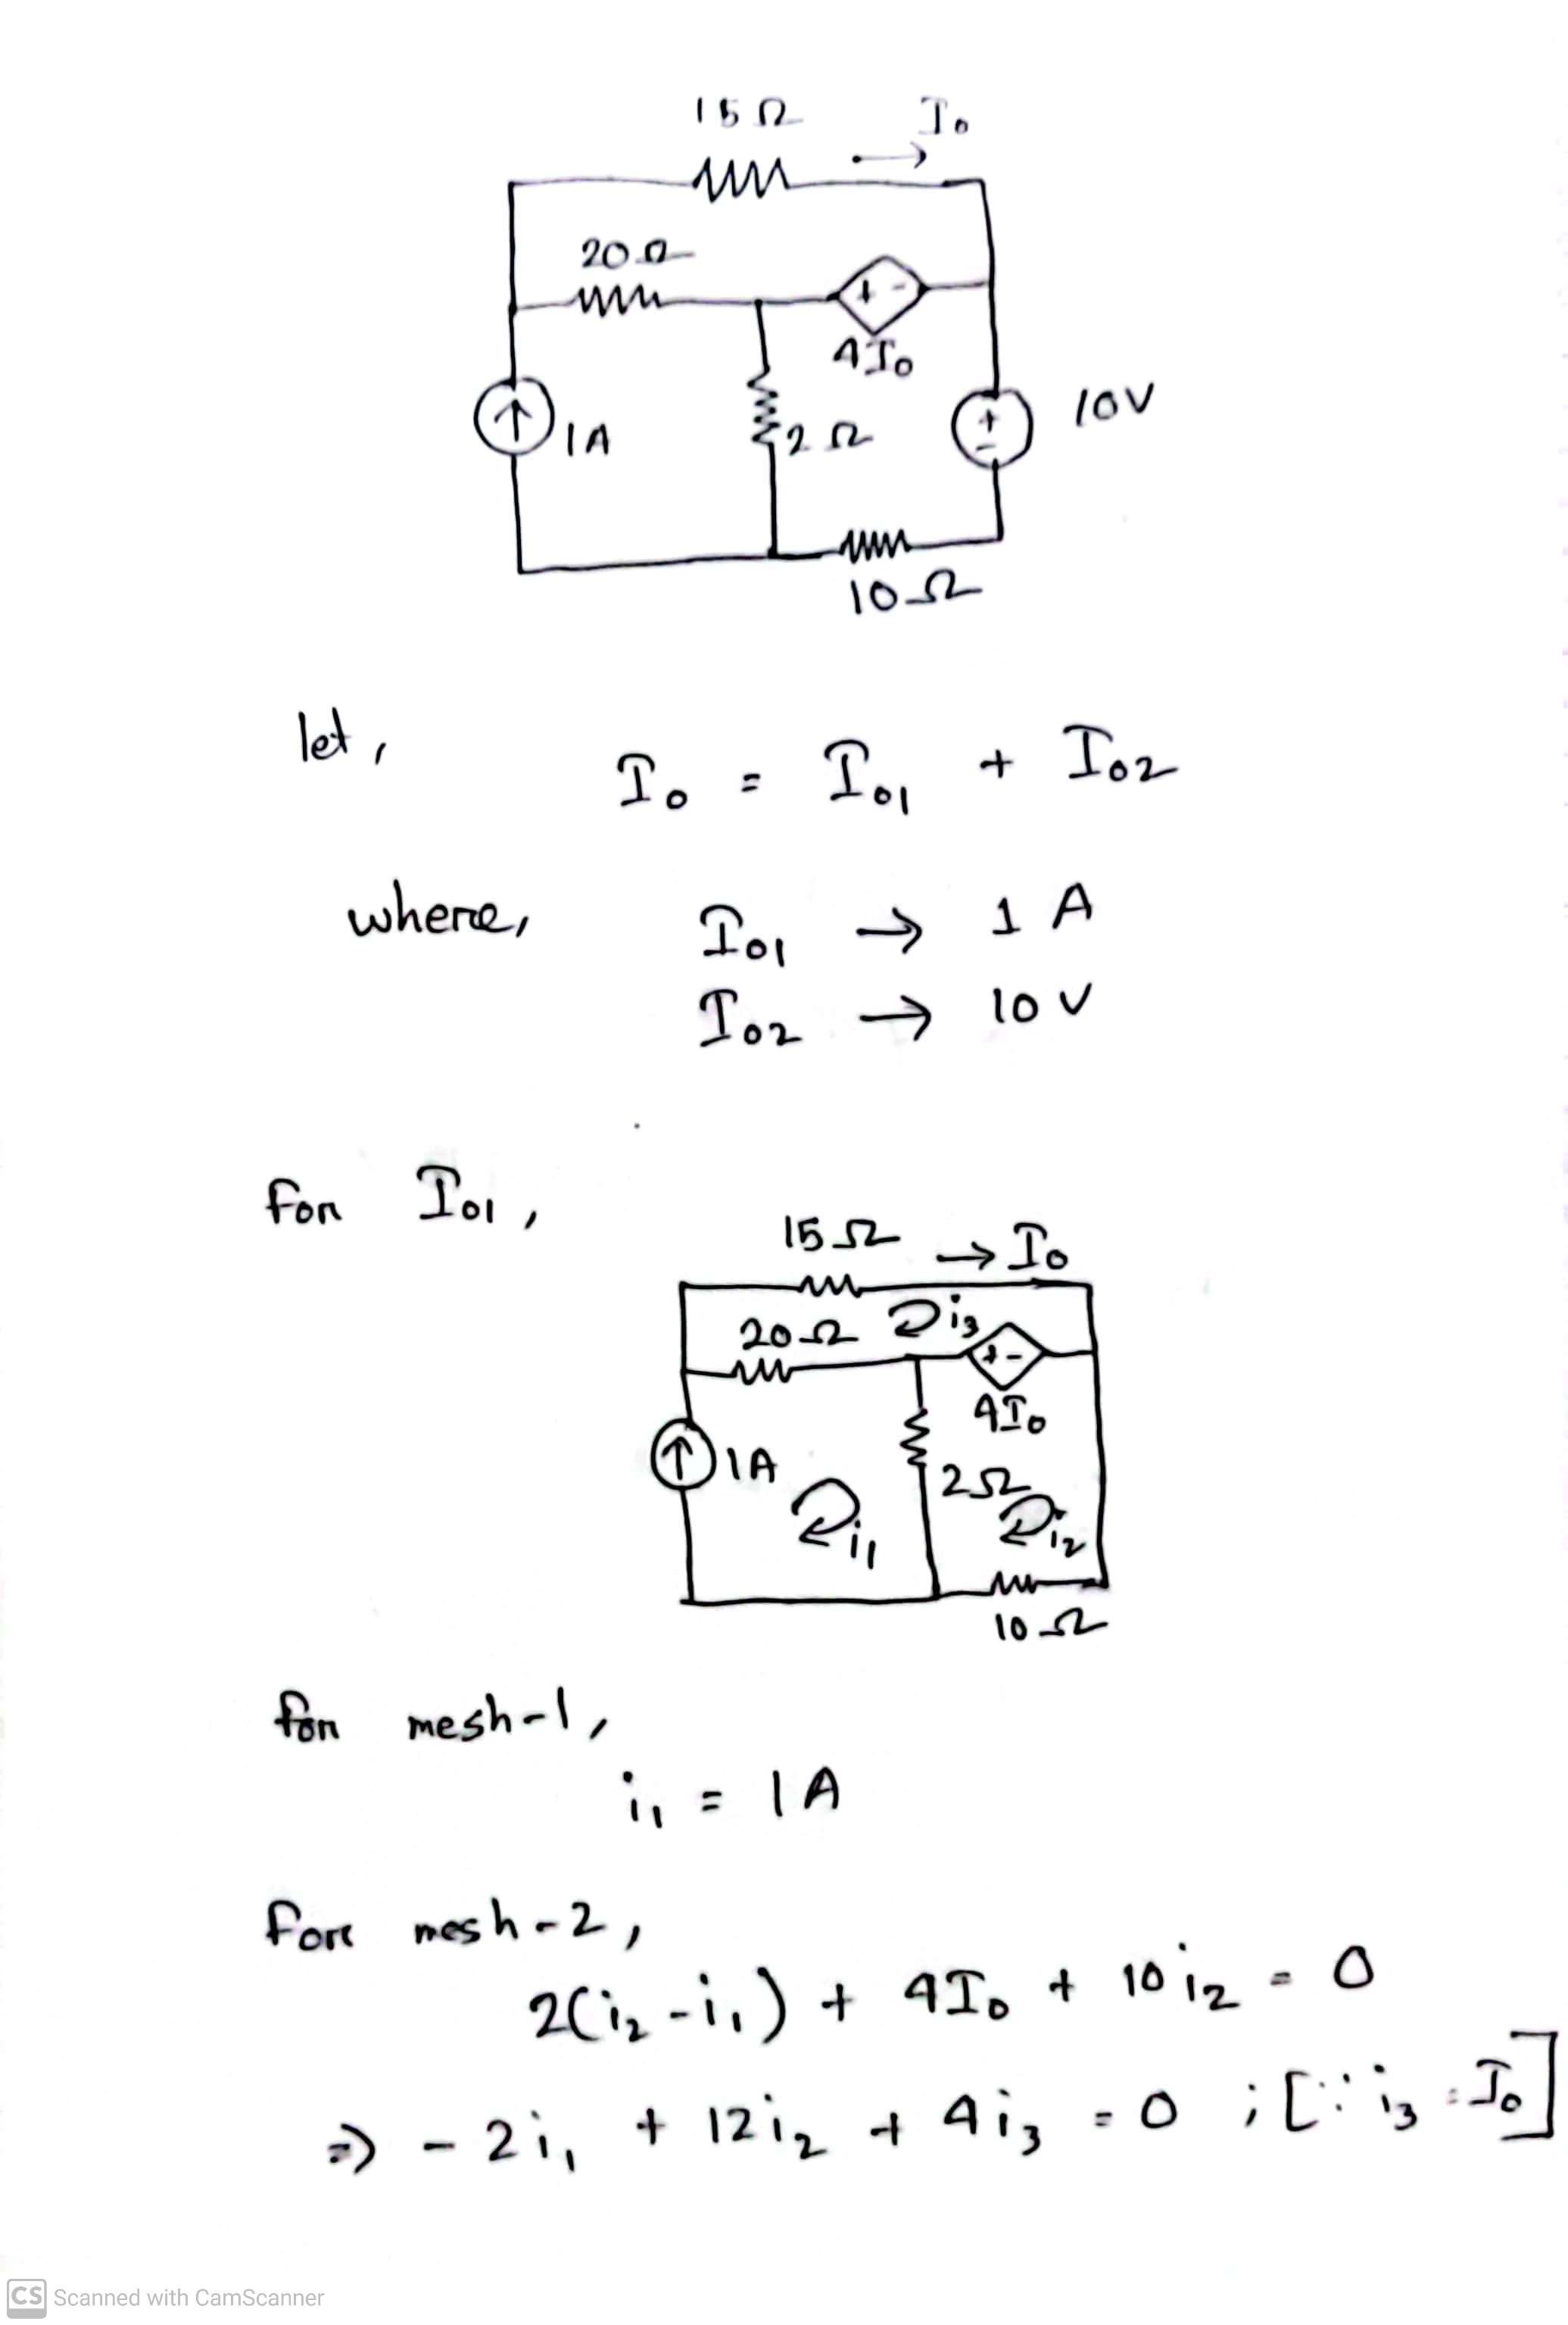 15Ω I₀
20Ω
+ -
4I₀
1A
2Ω
+
-
10V
10Ω
let, I₀ = I₀₁ + I₀₂
where, I₀₁ → 1 A
I₀₂ → 10 V
for I₀₁,
15Ω → I₀
20Ω i₃
+ -
4I₀
1A
2Ω
i₁ i₂
10Ω
for mesh-1,
i₁ = 1A
for mesh-2,
2(i₂-i₁) + 4I₀ + 10i₂ = 0
⇒ - 2i₁ + 12i₂ + 4i₃ = 0 ; [∵ i₃ = I₀]
CS Scanned with CamScanner